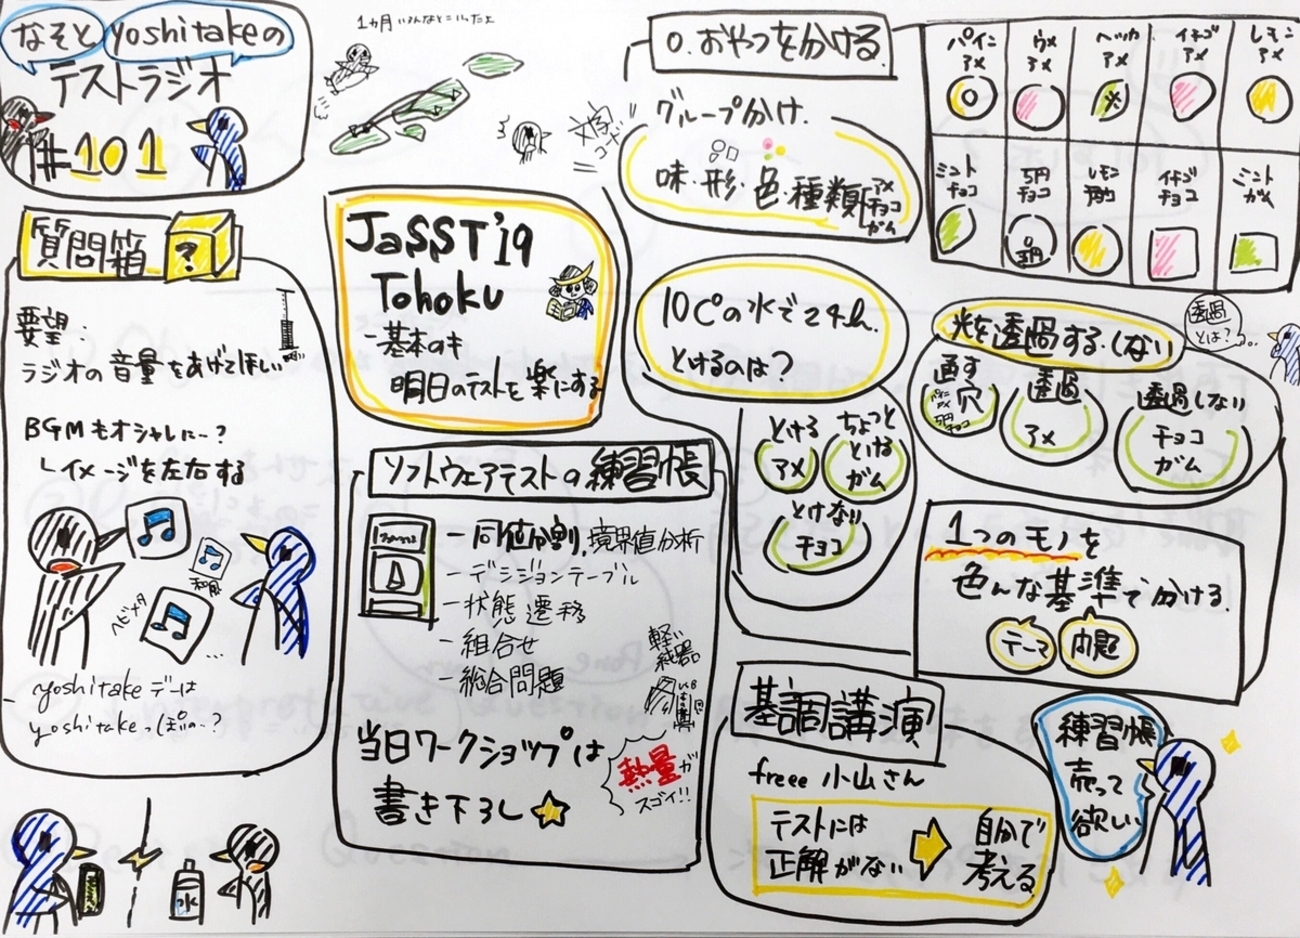 なそとyoshitakeの
テストラジオ
#101
質問箱
?
要望.
ラジオの音量をあげてほしい
BGMもオシャレに..?
イメージを左右する
和風
ヘビメタ
...
yoshitakeデーは
yoshitakeっぽいの..?
水
1ヵ月いろんなとこいったよ
JaSST'19
Tohoku
-基本のキ
明日のテストを楽にする
ソフトウェアテストの練習帳
-同値分割,境界値分析
-デシジョンテーブル
-状態遷移
-組合せ
-総合問題
軽い
当日ワークショップは
書き下ろし
熱量が
スゴイ!!
0.おやつを分ける
グループ分け.
味・形・色・種類
アメ
チョコ
ガム
パイン
アメ
ウメ
アメ
ハッカ
アメ
イチゴ
アメ
レモン
アメ
ミント
チョコ
5円
チョコ
レモン
イチゴ
チョコ
ミント
ガム
10℃の水で24h.
とけるのは?
とける
アメ
ちょっと
とける
ガム
とけない
チョコ
光を透過する.しない
透過
とは?
通す
穴
パイン
アメ
5円
チョコ
透過
アメ
透過しない
チョコ
ガム
1つのモノを
色んな基準で分ける.
テーマ
問題
基調講演
freee 小山さん
テストには
正解がない
自分で
考える
練習帳
売って
欲しい